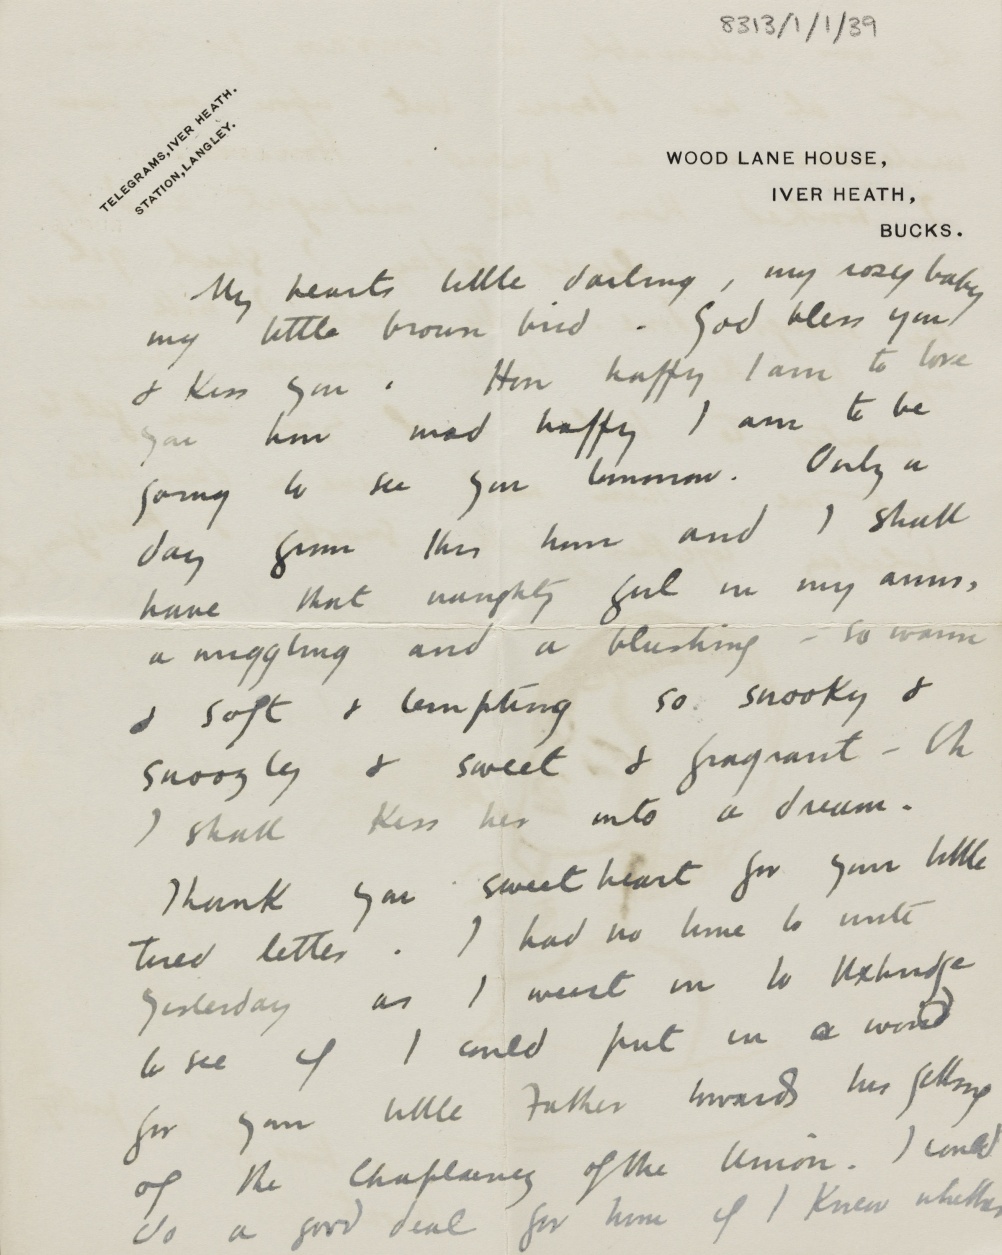 8313/1/1/39
TELEGRAMS, IVER HEATH.
STATION, LANGLEY.
WOOD LANE HOUSE,
IVER HEATH,
BUCKS.
My hearts little darling, my rosey baby
my little brown bird. God bless you
& Kiss you. How happy I am to love
you how mad happy I am to be
going to see you tomorrow. Only a
day from this hour and I shall
have that naughty girl in my arms,
a wriggling and a blushing – so warm
& soft & tempting so snooky &
snoozley & sweet & fragrant – Oh
I shall Kiss her into a dream.
Thank you sweetheart for your little
tired letter. I had no time to write
yesterday as I went in to Uxbridge
to see if I could put in a word
for your little Father towards his getting
of the Chaplaincy of the Union. I could
do a good deal for him if I Knew whether